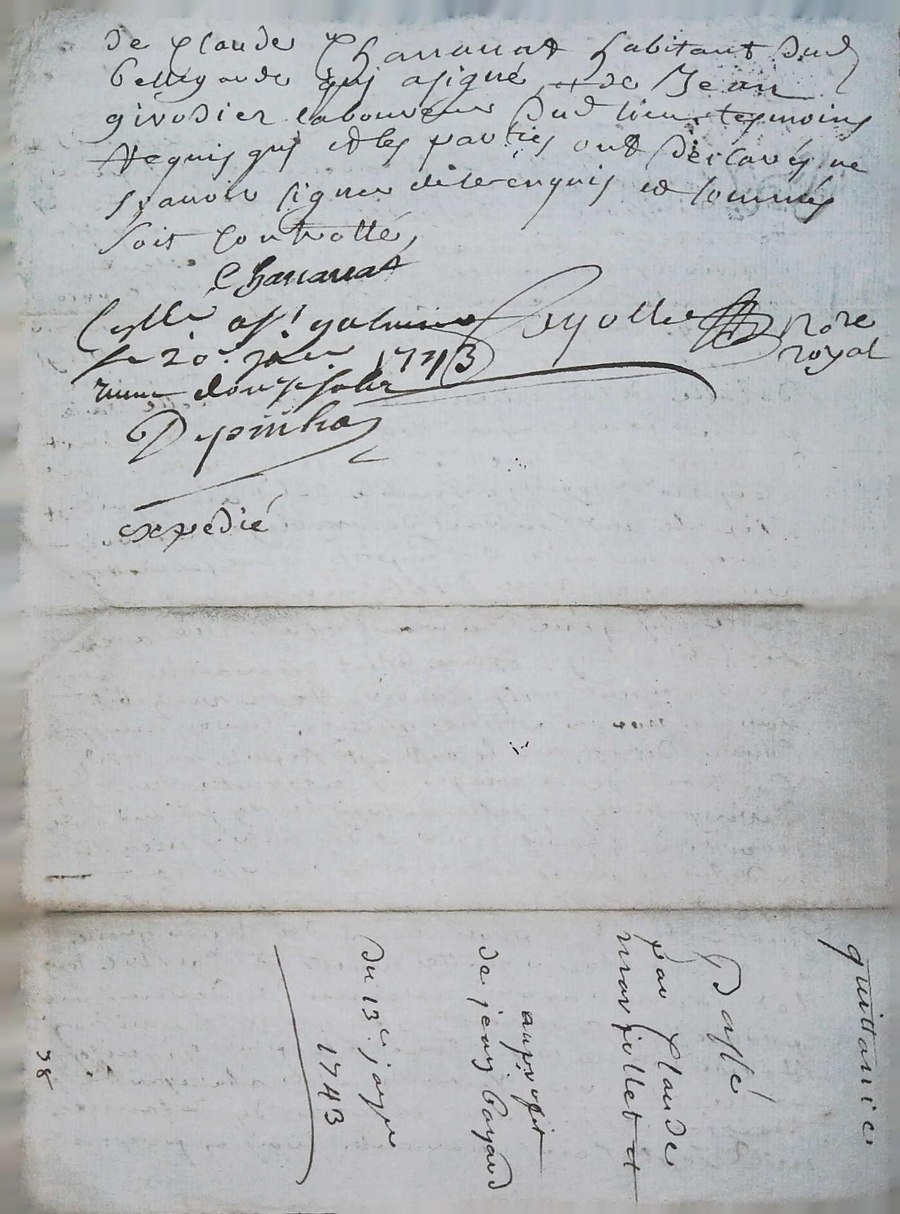 de Claude Chananat habitant dud
bellegarde qui a signé et de Jean
girodier laboureur dud lieu tesmoins
requis qui et les parties ont déclarés ne
sçavoir signer de ce enquis et sommés
soit controllé
Chananat
Collé a st galmier
le 20e janer 1743
douze sols
Depinhac
nore
royal
expedié
quittance
passé
par Claude
et
au profit
de jean bayard
du 13e janer
1743